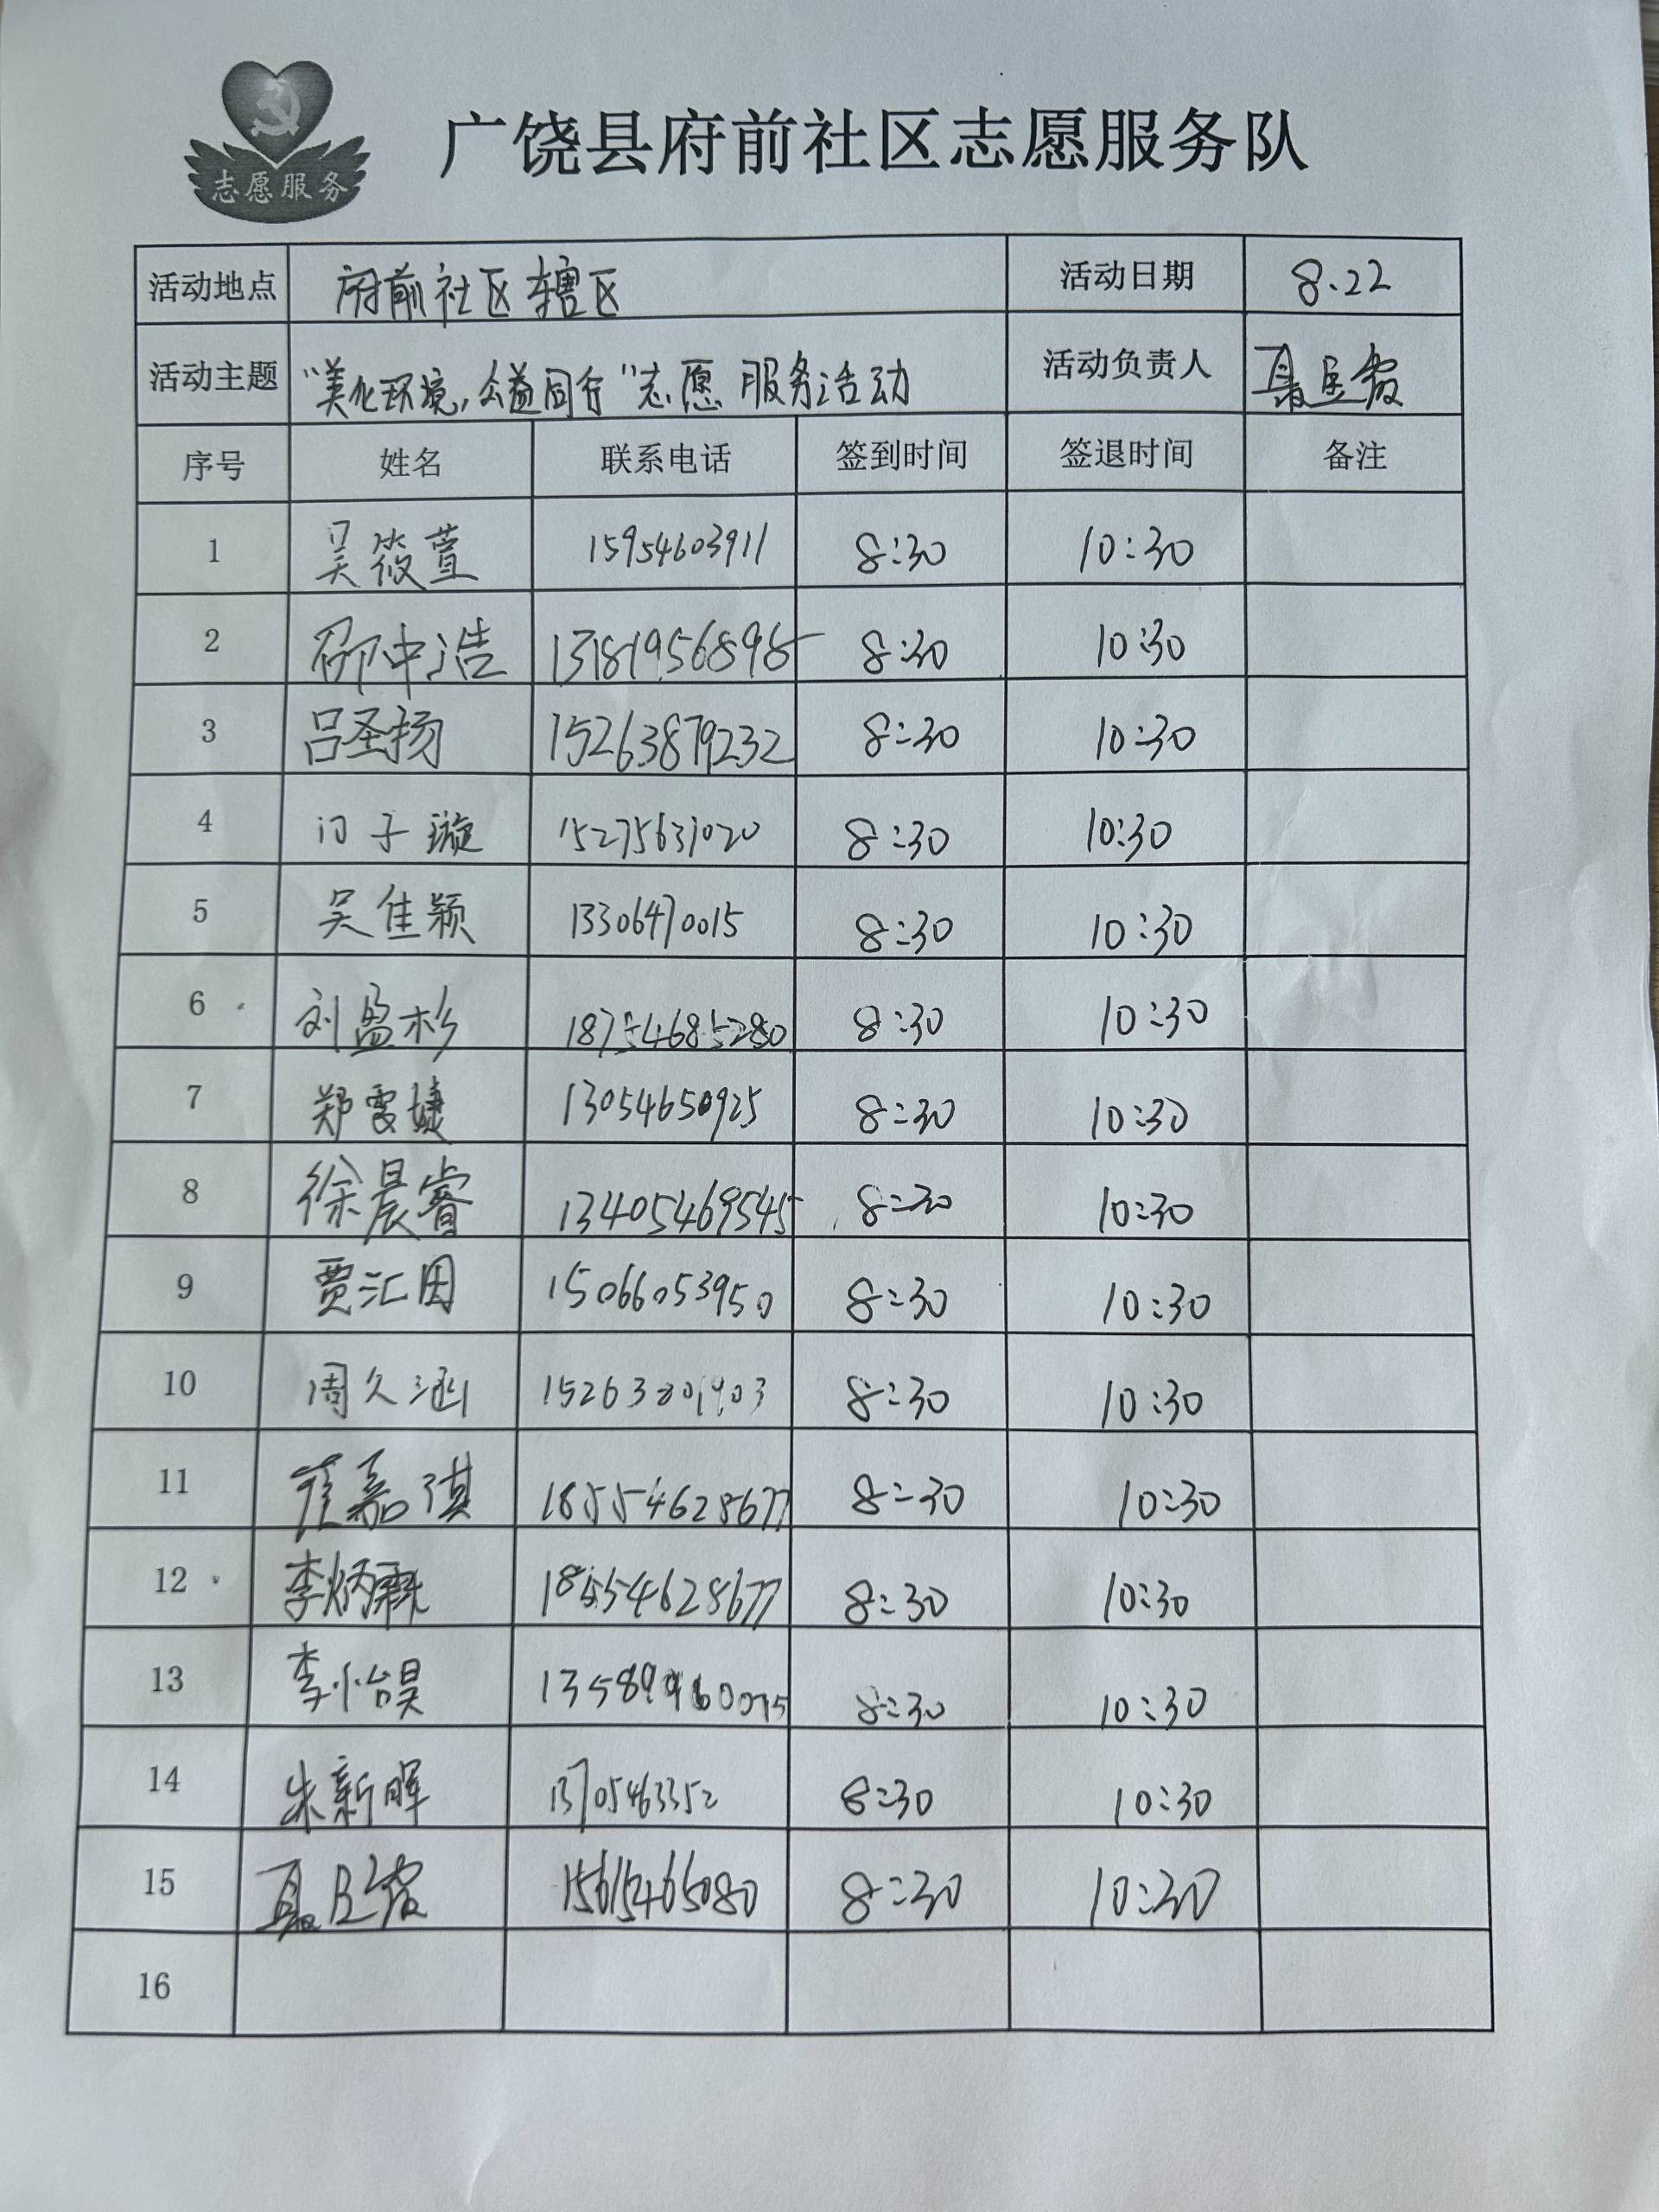 志愿服务
广饶县府前社区志愿服务队
活动地点 府前社区辖区 活动日期 8.22
活动主题 “美化环境,公益同行”志愿服务活动 活动负责人 聂
序号 姓名 联系电话 签到时间 签退时间 备注
1 吴筱萱 15954603911 8:30 10:30
2 邵中浩 13181956898 8:30 10:30
3 吕圣扬 15263879232 8:30 10:30
4 闫子璇 15275631020 8:30 10:30
5 吴佳颖 13306470015 8:30 10:30
6 刘盈杉 18754685280 8:30 10:30
7 郑雯婕 13054650925 8:30 10:30
8 徐晨睿 13405469545 8:30 10:30
9 贾汇因 15066053950 8:30 10:30
10 周久涵 15263801903 8:30 10:30
11 嘉琪 18554628677 8:30 10:30
12 李炳 18554628677 8:30 10:30
13 李怡昊 8:30 10:30
14 朱新晖 13705463352 8:30 10:30
15 聂 15615466080 8:30 10:30
16